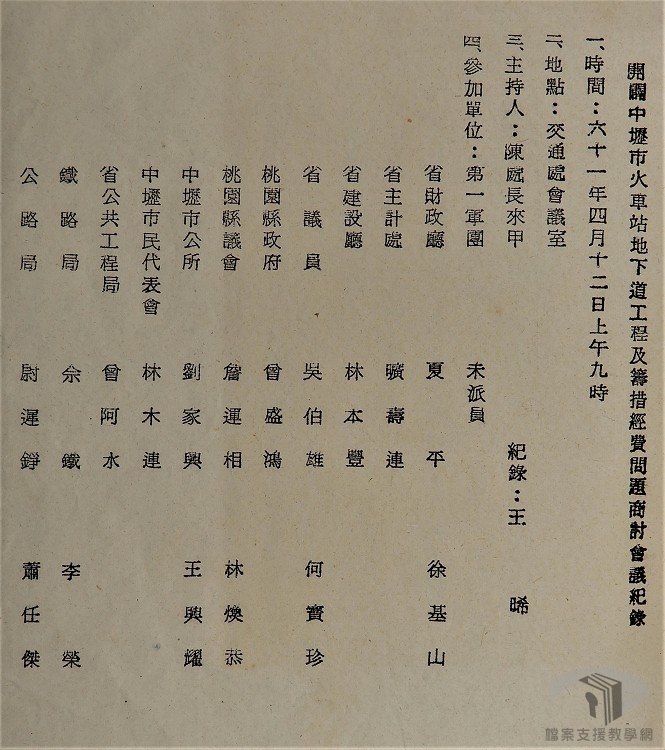 開闢中壢市火車站地下道工程及籌措經費問題商討會議紀錄
一、時間：六十一年四月十二日上午九時
二、地點：交通處會議室
三、主持人：陳處長來甲　紀錄：王　晞
四、參加單位：第一軍團　未派員
省財政廳　夏　平　徐基山
省主計處　曠壽連
省建設廳　林本豐
省議員　吳伯雄　何寶珍
桃園縣政府　曾盛鴻
桃園縣議會　詹運相　林煥恭
中壢市公所　劉家興　王興耀
中壢市民代表會　林木連
省公共工程局　曾阿水
鐵路局　佘鐵　李榮
公路局　尉遲錚　蕭任傑
檔案支援教學網